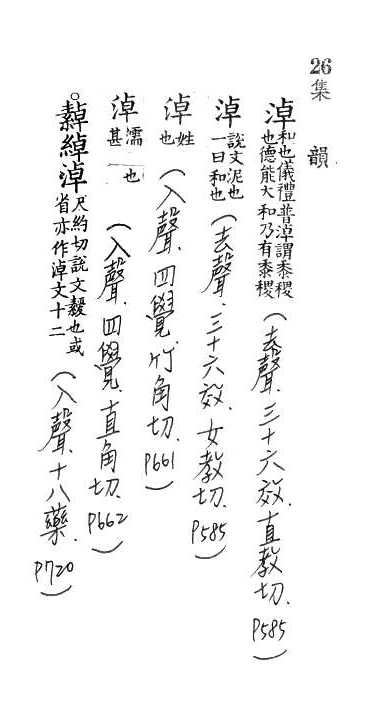 26集韻
淖和也儀禮普淖謂黍稷也德能大和乃有黍稷(去聲.三十六效.直教切.P585)
淖說文泥也一曰和也(去聲.三十六效.女教切.P585)
淖姓也(入聲.四覺.竹角切.P661)
淖濡甚也(入聲.四覺.直角切.P662)
繛綽淖尺約切說文緩也或省亦作淖文十二(入聲.十八藥.P720)